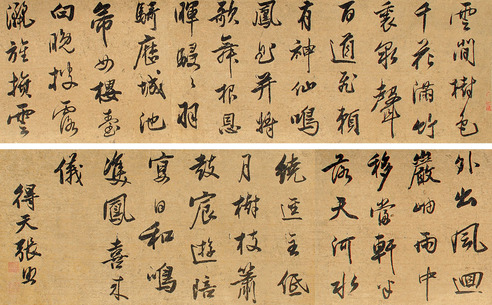 雲間樹色
千花滿竹
裏泉聲
百道飛頻
有神仙鳴
鳳曲并將
歌舞報恩
暉駸々羽
騎歷城池
帝女樓臺
向晚披露
灑旌旗雲
外出風迴
巖岫雨中
移當軒半
落天河水
繞逕全低
月樹枝簫
鼓宸遊陪
宴日和鳴
雙鳳喜來
儀
得天張照